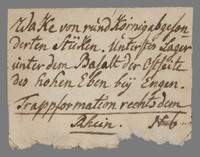 Wakke von rund Körnig abgeson
derten Stüken. Unterstes Lager
unter dem Basalt der Ostseite
des hohen Eben bÿ Engen.
Trappformation rechts dem
Rhein.